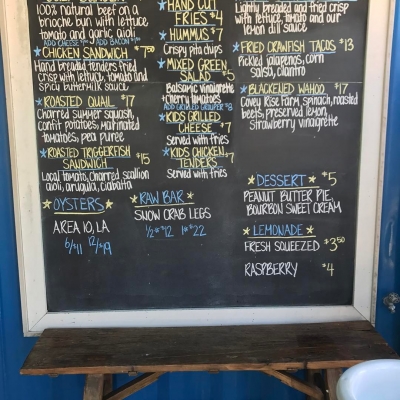 100% natural beef on a
brioche bun with lettuce,
tomato and garlic aioli
ADD CHEESE ADD BACON
★CHICKEN SANDWICH $7.50
Hand breaded tenders fried
crisp with lettuce, tomato and
spicy buttermilk sauce
★ROASTED QUAIL $17
Charred summer squash,
confit potatoes, marinated
tomatoes, pea puree
★ROASTED TRIGGERFISH
SANDWICH $15
Local tomato, charred scallion
aioli, arugula, ciabatta
★OYSTERS★
AREA 10, LA
6/$11 12/$19
HAND CUT
FRIES $4
★HUMMUS $7
Crispy pita chips
★MIXED GREEN
SALAD $5
Balsamic vinaigrette
+ cherry tomatoes
ADD GRILLED GROUPER $8
★KIDS GRILLED
CHEESE $7
Served with fries
★KIDS CHICKEN
TENDERS $7
Served with fries
★RAW BAR★
SNOW CRAB LEGS
1/2# $12 1# $22
Lightly breaded and fried crisp
with lettuce, tomato and our
lemon dill sauce
★FRIED CRAWFISH TACOS $13
Pickled jalapenos, corn
salsa, cilantro
★BLACKENED WAHOO $17
Covey Rise Farm spinach, roasted
beets, preserved lemon,
strawberry vinaigrette
★DESSERT★ $5
PEANUT BUTTER PIE,
BOURBON SWEET CREAM
★LEMONADE★
FRESH SQUEEZED $3.50
RASPBERRY $4